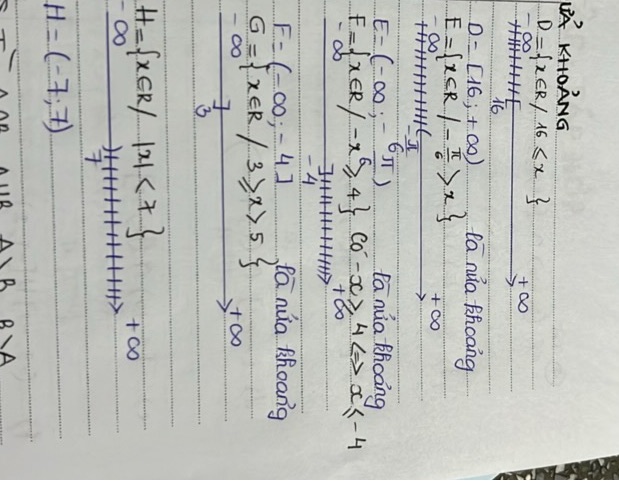 ỬA KHOẢNG
D = {x∈R / 16 ≤ x }
-∞ 16 +∞
D = [16; +∞) là nửa khoảng
E = {x∈R / -π/6 > x }
-∞ -π/6 +∞
E = (-∞; -π/6) là nửa khoảng
F = {x∈R / -x ≥ 4} Có -x ≥ 4 <=> x ≤ -4
-∞ -4 +∞
F = (-∞; -4] là nửa khoảng
G = {x∈R / 3 ≥ x > 5 }
-∞ 3 +∞
H = {x∈R / |x| < 7 }
-∞ 7 +∞
H = (-7; 7)
A\B B\A